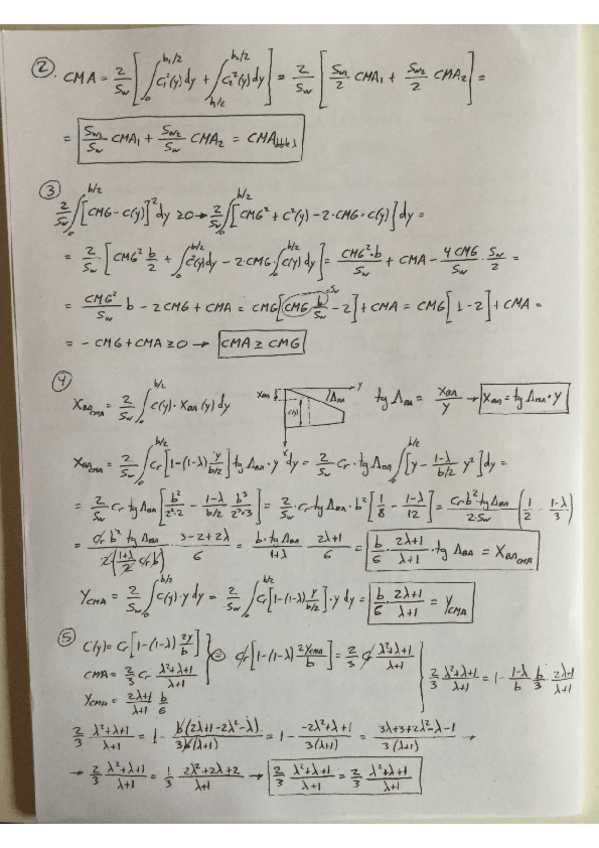 ②. CMA = 2/Sw [∫₀^{b₁/2} c₁²(y)dy + ∫_{b₁/2}^{b₂/2} c₂²(y)dy] = 2/Sw [Sw₁/2 CMA₁ + Sw₂/2 CMA₂] =
= Sw₁/Sw CMA₁ + Sw₂/Sw CMA₂ = CMA
③
2/Sw ∫₀^{b/2} [CMG - c(y)]² dy ≥ 0 → 2/Sw ∫₀^{b/2} [CMG² + c²(y) - 2·CMG·c(y)] dy =
= 2/Sw · [CMG² b/2 + ∫₀^{b/2} c²(y)dy - 2·CMG·∫₀^{b/2} c(y)dy] = CMG²·b/Sw + CMA - 4CMG/Sw · Sw/2 =
= CMG²/Sw b - 2CMG + CMA = CMG[CMG b/Sw - 2] + CMA = CMG[1 - 2] + CMA =
= - CMG + CMA ≥ 0 → CMA ≥ CMG
④
X_{BA CMA} = 2/Sw ∫₀^{b/2} c(y)·X_{BA}(y)dy X_{BA} y Λ_{BA} c(y) x tg Λ_{BA} = X_{BA}/y → X_{BA} = tg Λ_{BA}·y
X_{BA CMA} = 2/Sw ∫₀^{b/2} Cr[1-(1-λ) y/(b/2)] tg Λ_{BA}·y dy = 2/Sw Cr·tg Λ_{BA} ∫₀^{b/2} [y - (1-λ)/(b/2) y²] dy =
= 2/Sw Cr tg Λ_{BA} [b²/(2²·2) - (1-λ)/(b/2) b³/(2³·3)] = 2/Sw · Cr·tg Λ_{BA}·b² [1/8 - (1-λ)/12] = Cr·b² tg Λ_{BA}/(2·Sw) (1/2 - (1-λ)/3)
= Cr b² tg Λ_{BA}/(2((1+λ)/2 Cr b)) · (3-2+2λ)/6 = b·tg Λ_{BA}/(1+λ) · (2λ+1)/6 = b/6 · (2λ+1)/(λ+1) · tg Λ_{BA} = X_{BA CMA}
Y_{CMA} = 2/Sw ∫₀^{b/2} c(y)·y dy = 2/Sw ∫₀^{b/2} Cr[1-(1-λ) y/(b/2)]·y dy = b/6 · (2λ+1)/(λ+1) = Y_{CMA}
⑤ c(y) = Cr[1-(1-λ) 2y/b]
CMA = 2/3 Cr (λ²+λ+1)/(λ+1)
Y_{CMA} = (2λ+1)/(λ+1) b/6
Cr[1-(1-λ) 2Y_{CMA}/b] = 2/3 Cr (λ²+λ+1)/(λ+1)
2/3 (λ²+λ+1)/(λ+1) = 1 - (1-λ)/b · b/3 · (2λ+1)/(λ+1)
2/3 (λ²+λ+1)/(λ+1) = 1 - b(2λ+1-2λ²-λ)/(3b(λ+1)) = 1 - (-2λ²+λ+1)/(3(λ+1)) = (3λ+3+2λ²-λ-1)/(3(λ+1)) →
→ 2/3 (λ²+λ+1)/(λ+1) = 1/3 (2λ²+2λ+2)/(λ+1) → 2/3 (λ²+λ+1)/(λ+1) = 2/3 (λ²+λ+1)/(λ+1)